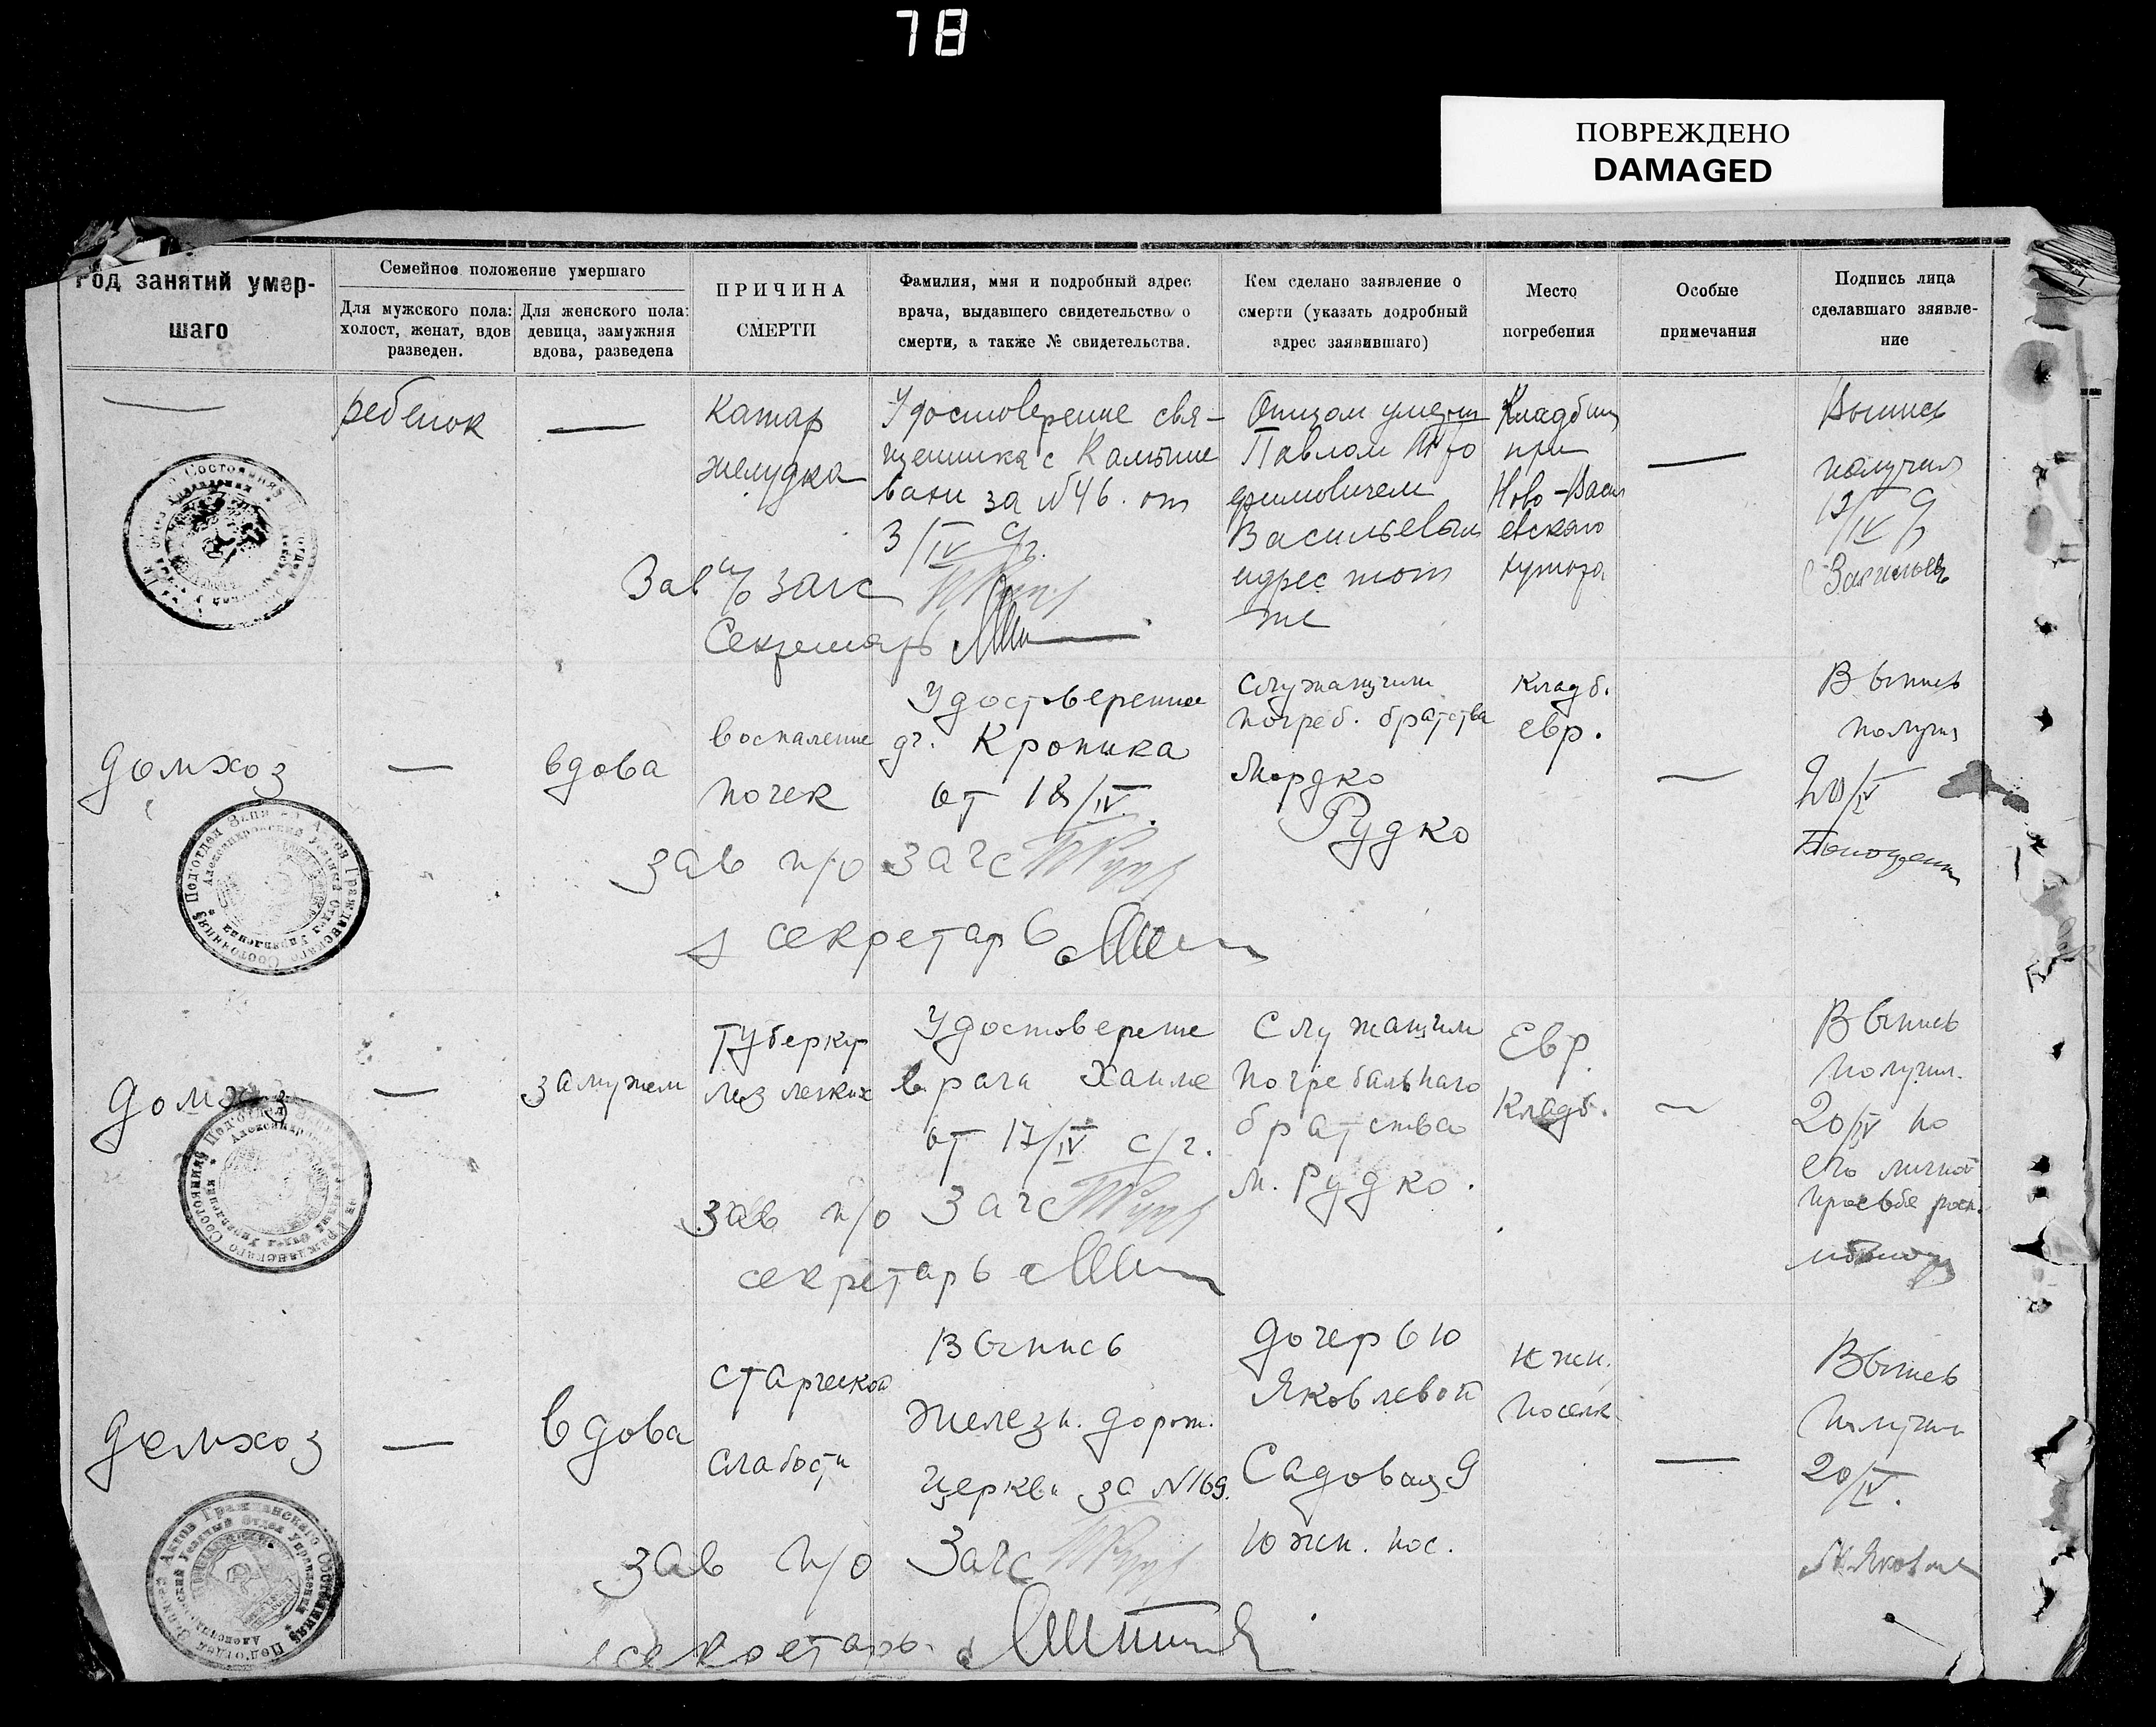 78
ПОВРЕЖДЕНО
DAMAGED
Род занятий умер-
шаго
Семейное положение умершаго
Для мужского пола:
холост, женат, вдов
разведен.
Для женского пола:
девица, замужняя
вдова, разведена
ПРИЧИНА
СМЕРТИ
Фамилия, имя и подробный адрес
врача, выдавшего свидетельство о
смерти, а также № свидетельства.
Кем сделано заявление о
смерти (указать додробный
адрес заявившаго)
Место
погребения
Особые
примечания
Подпись лица
сделавшаго заявле-
ние
—
ребенок
—
Катар
желудка
Удостоверение свя-
щенника с Камыше
вахи за №46. от
3/IV с/г.
Отцом умерш
Павлом Тро
фимовичем
Васильевым
адрес тот
же
Кладбищ
при
Ново-Васил
евского
хутора
—
Выпись
получил
13/IV
Васильев
Зав п/о загс
Секретарь
домхоз
—
вдова
воспаление
почек
Удостоверение
Кроника
от 18/IV.
Служащим
погреб. братства
Мордко
Рудко
Кладб.
евр.
—
Выпись
получил
20/IV
зав п/о загс
секретарь
домхоз
—
замужем
туберку
лез легких
Удостоверение
врача Хаиме
от 17/IV с/г.
Служащим
погребальнаго
братства
М. Рудко.
Евр.
Кладб.
—
Выпись
получил.
20/IV по
его личной
просьбе росп.
зав п/о Загс
секретарь
домхоз
—
вдова
старческой
слабости
Выпись
Железн. дорож.
церкви за №169.
дочерью
Яковлевой
Садовая 9
Южн. пос.
Южн.
поселк.
—
Выпись
получил
20/IV.
зав п/о Загс
секретарь